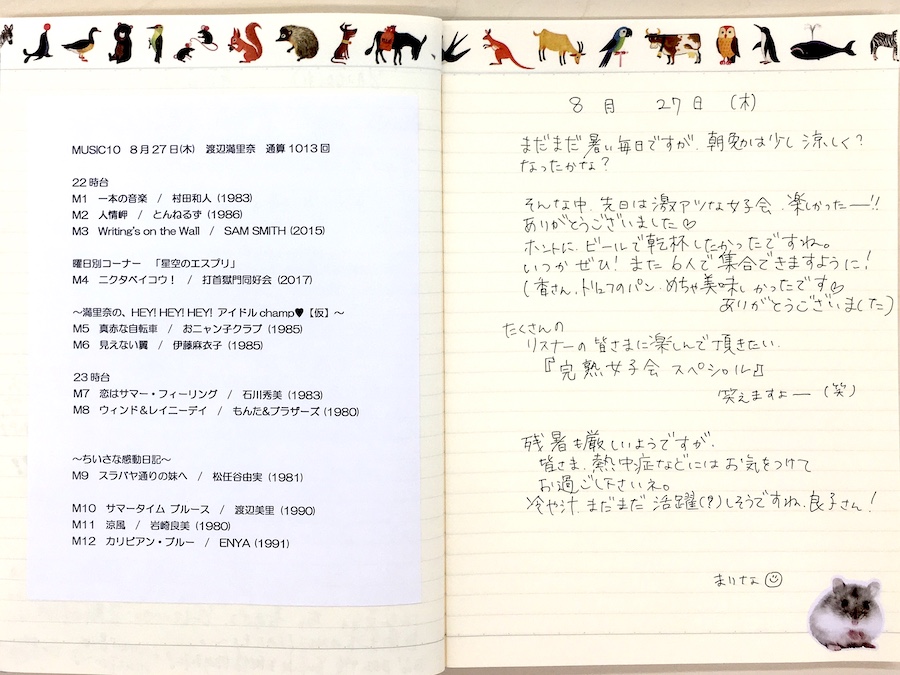 MUSIC10 8月27日(木) 渡辺満里奈 通算1013回
22時台
M1 一本の音楽 / 村田和人 (1983)
M2 人情岬 / とんねるず (1986)
M3 Writing's on the Wall / SAM SMITH (2015)
曜日別コーナー 「星空のエスプリ」
M4 ニクタベイコウ! / 打首獄門同好会 (2017)
～満里奈の、HEY! HEY! HEY! アイドルchamp♥【仮】～
M5 真赤な自転車 / おニャン子クラブ (1985)
M6 見えない翼 / 伊藤麻衣子 (1985)
23時台
M7 恋はサマー・フィーリング / 石川秀美 (1983)
M8 ウィンド&レイニーデイ / もんた&ブラザーズ (1980)
～ちいさな感動日記～
M9 スラバヤ通りの妹へ / 松任谷由実 (1981)
M10 サマータイム ブルース / 渡辺美里 (1990)
M11 涼風 / 岩崎良美 (1980)
M12 カリビアン・ブルー / ENYA (1991)
8月 27日 (木)
まだまだ暑い毎日ですが、朝晩は少し涼しく?
なったかな?
そんな中、先日は激アツな女子会、楽しかったー!!
ありがとうございました♡
ホントに、ビールで乾杯したかったですね。
いつか ぜひ! また 6人で集合できますように!
(香さん、ドロフのパン、めちゃ美味しかったです♡
ありがとうございました)
たくさんの
リスナーの皆さまに楽しんで頂きたい、
『完熟女子会 スペシャル』
笑えますよー (笑)
残暑も厳しいようですが、
皆さま、熱中症などにはお気をつけて
お過ごし下さいネ。
冷や汁、まだまだ 活躍(?)しそうですね、良子さん!
まりな